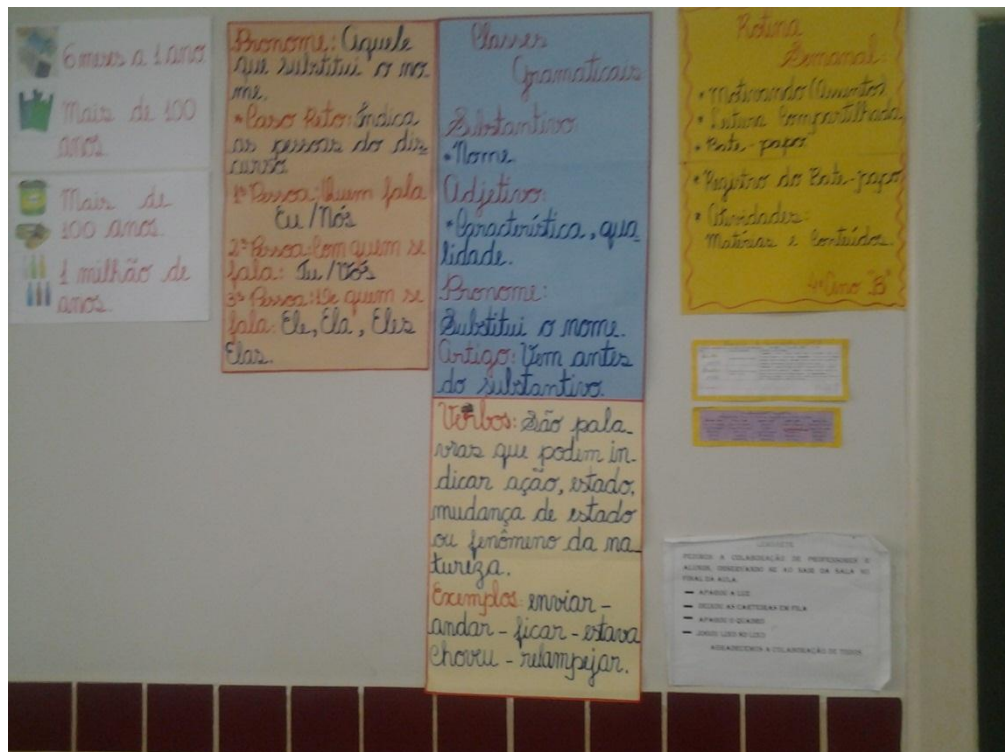 6 meses a 1 ano
Mais de 100
anos.
Mais de
100 anos.
1 milhão de
anos.
Pronome: Aquele
que substitui o no-
me.
• Caso Reto: Indica
as pessoas do dis-
curso
1ª Pessoa: Quem fala
Eu / Nós
2ª Pessoa: Com quem se
fala: Tu / Vós
3ª Pessoa: De quem se
fala: Ele, Ela, Eles
Elas.
Classes
Gramaticais
Substantivo
• Nome
Adjetivo:
• Característica, qua-
lidade.
Pronome:
Substitui o nome.
Artigo: Vem antes
do substantivo.
Verbos: São pala-
vras que podem in-
dicar ação, estado,
mudança de estado
ou fenômeno da na-
tureza.
Exemplos: enviar -
andar - ficar - estava
choveu - relampejar.
Rotina
Semanal:
• Motivando (Assuntos)
• Leitura Compartilhada
• Bate-papo
• Registro do Bate-papo
• Atividades:
Matérias e Conteúdos.
4º Ano "B"
A COLABORAÇÃO DE PROFESSORES E
ALUNOS, OBSERVANDO SE AO SAIR DA SALA NO
FINAL DA AULA:
— APAGOU A LUZ
— DEIXOU AS CARTEIRAS EM FILA
— APAGOU O QUADRO
— JOGOU LIXO NO LIXO
A COLABORAÇÃO DE TODOS